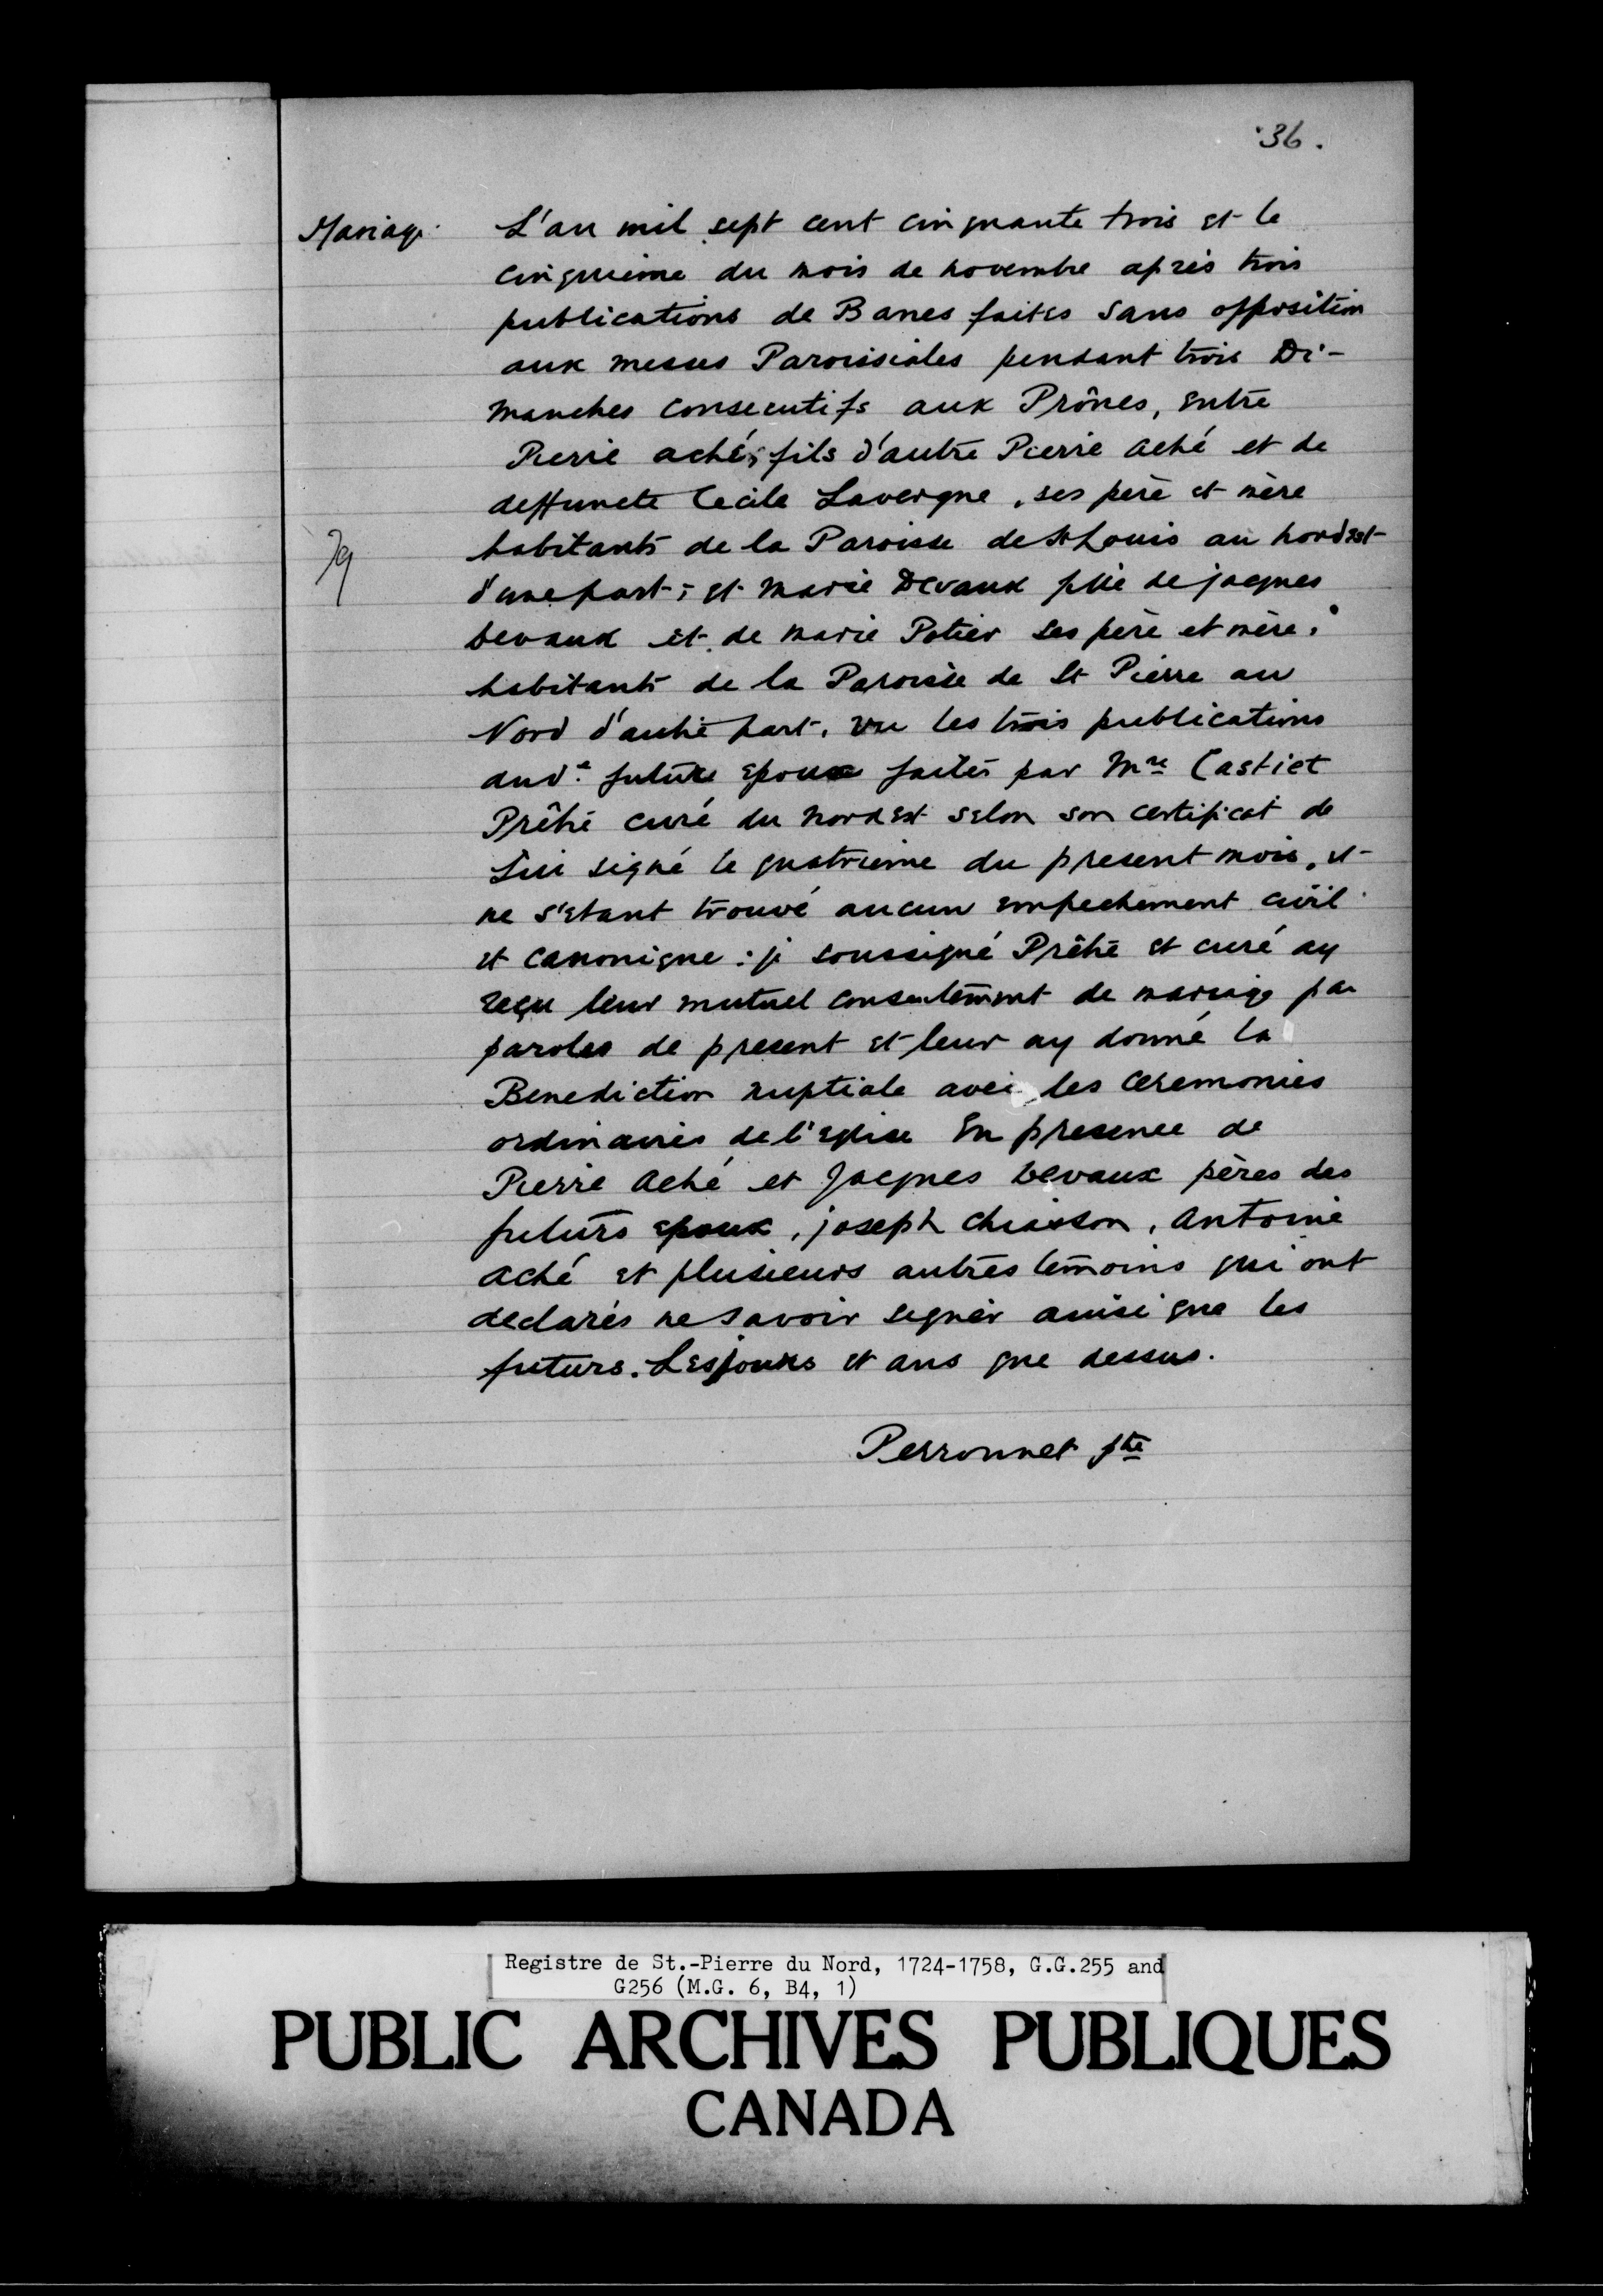 36.
Mariage
L'an mil sept cent cinquante trois et le
cinquieme du mois de novembre après trois
publications de Banes faites sans opposition
aux messes Paroissiales pendant trois Di-
manches consecutifs aux Prônes, entre
Pierre aché, fils d'autre Pierre aché et de
deffuncte Cecile Lavergne, ses père et mère
habitants de la Paroisse de St Louis au nord est
d'une part; et marie Devaux fille de jacques
Devaux et de marie Potier ses père et mère,
habitants de la Paroisse de St Pierre au
Nord d'autre part. vu les trois publications
dud.t future epoux faites par Mre Castiet
Prêtre curé du nord est selon son certificat de
Lui signé le quatrieme du present mois, et
ne s'etant trouvé aucun empechement civil
et canonique: je soussigné Prêtre et curé ay
reçu leur mutuel consentement de mariage par
paroles de present et leur ay donné la
Benediction nuptiale avec les ceremonies
ordinaires de l'eglise En presence de
Pierre aché et Jacques Devaux pères des
futurs epoux, joseph chiasson, antoine
aché et plusieurs autres temoins qui ont
declarés ne savoir signer ainsi que les
futurs. Les jours et ans que dessus.
79
Perronnet ptre
Registre de St.-Pierre du Nord, 1724-1758, G.G.255 and
G256 (M.G. 6, B4, 1)
PUBLIC ARCHIVES PUBLIQUES
CANADA